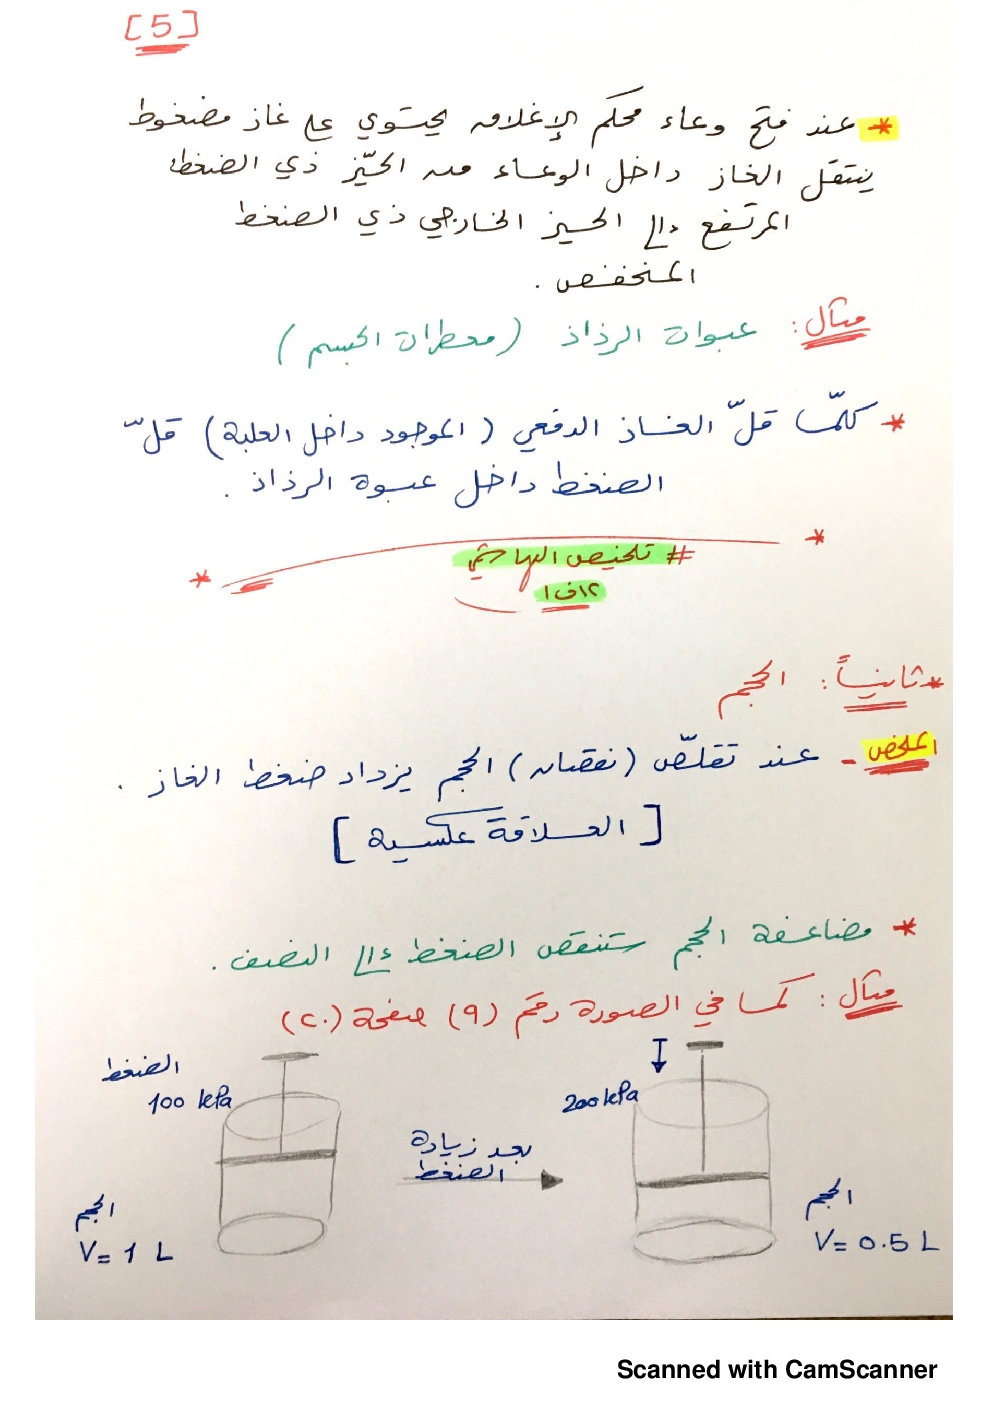 [5]
* عند فتح وعاء محكم الإغلاق يحتوي على غاز مضغوط
ينتقل الغاز داخل الوعاء من الحيّز ذي الضغط
المرتفع إلى الحيز الخارجي ذي الضغط
المنخفض .
مثال : عبوات الرذاذ (معطرات الجسم)
* كلمّا قلّ الغاز الدفعي (الموجود داخل العلبة) قلّ
الضغط داخل عبوة الرذاذ .
# تلخيص الهاشمي
١٢ف١
* ثانياً : الحجم
الملخص - عند تقلّص (نقصان) الحجم يزداد ضغط الغاز .
[العلاقة عكسية]
* مضاعفة الحجم ستنقص الضغط إلى النصف .
مثال : كما في الصورة رقم (٩) صفحة (٢٠)
الضغط
100 kPa
200 kPa
بعد زيادة
الضغط
الحجم
V= 1 L
الحجم
V= 0.5 L
Scanned with CamScanner